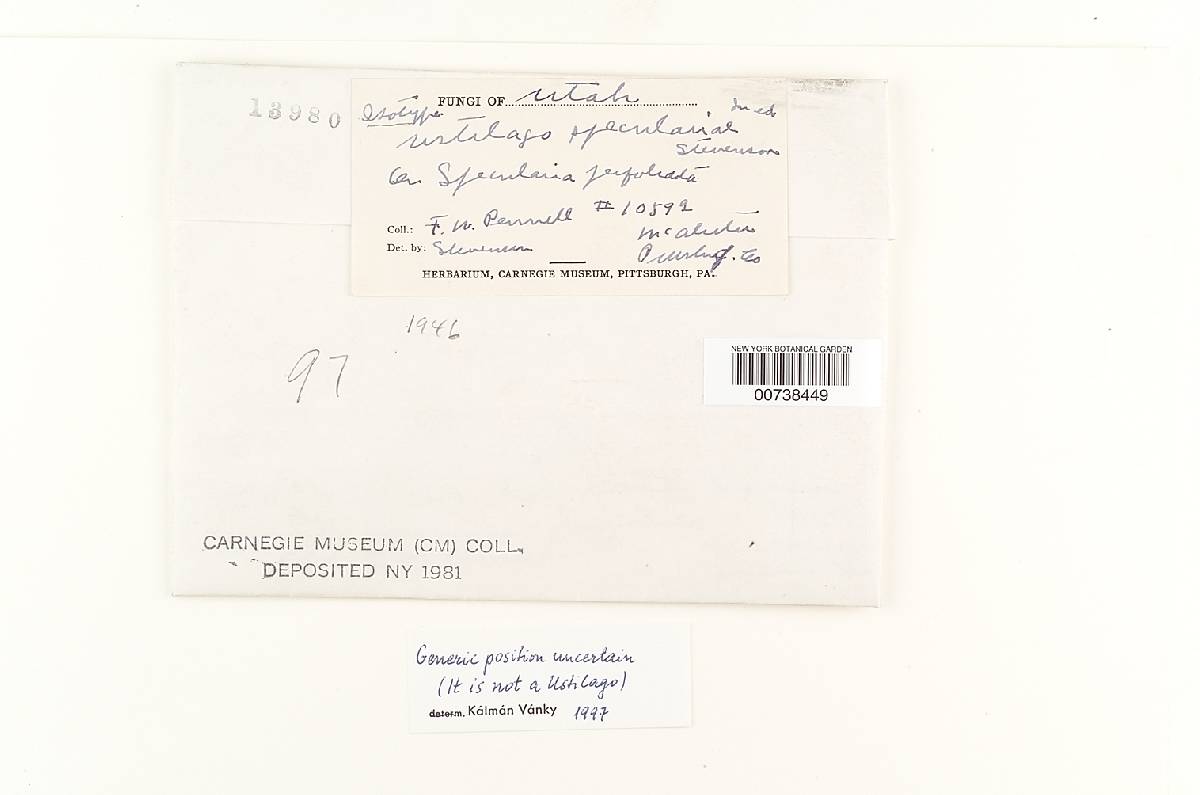 13980
FUNGI OF Utah
Isotype
Ined.
Ustilago speculariae
Stevenson
On Specularia perfoliata
Coll.: F. W. Pennell # 10592
McAlester
Det. by: Stevenson
Pittsburg. Co
HERBARIUM, CARNEGIE MUSEUM, PITTSBURGH, PA.
1946
97
NEW YORK BOTANICAL GARDEN
00738449
CARNEGIE MUSEUM (CM) COLL.
DEPOSITED NY 1981
Generic position uncertain
(It is not a Ustilago)
determ. Kálmán Vánky 1997